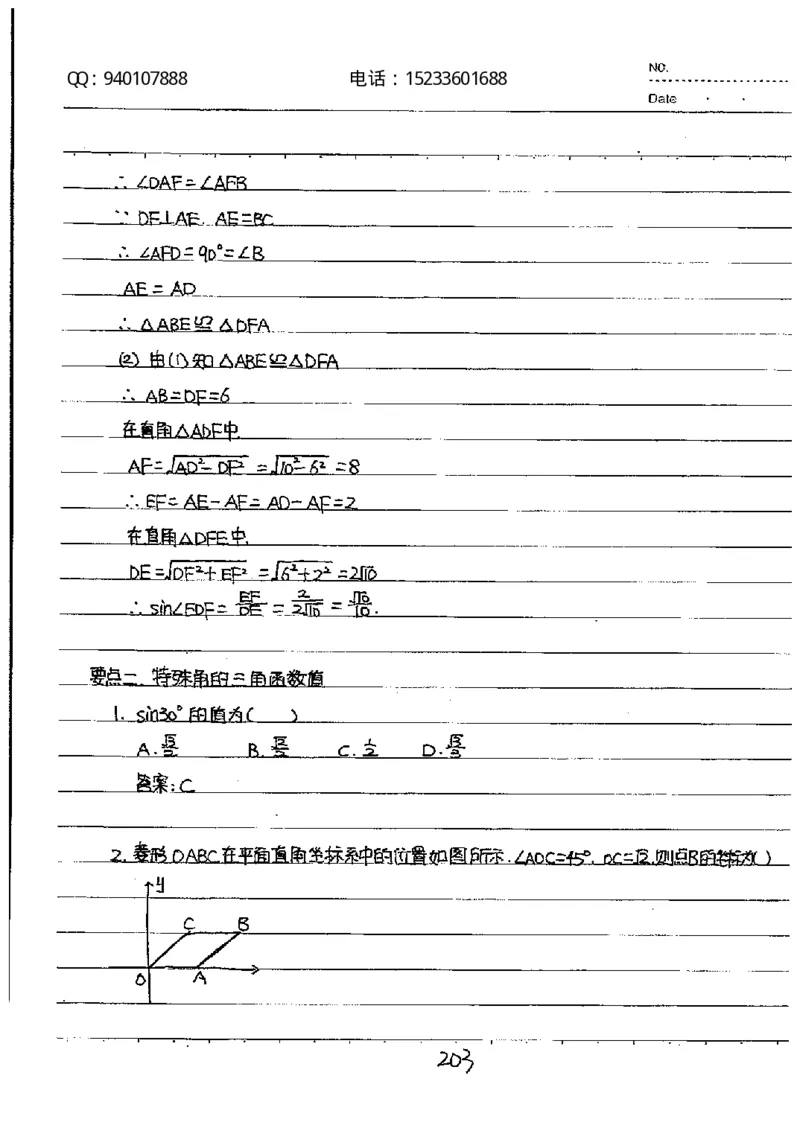 QQ：940107888 电话：15233601688
NO.
Date
∴ ∠DAF=∠AEB
∵ DF⊥AE. AE=BC
∴ ∠AFD=90°=∠B
AE=AD
∴ △ABE≌△DFA
(2) 由(1)知△ABE≌△DFA
∴ AB=DF=6
在直角△ADF中
AF=√AD²-DF² =√10²-6² =8
∴ EF=AE-AF=AD-AF=2
在直角△DFE中
DE=√DF²+EF² =√6²+2² =2√10
∴ sin∠EDF= EF/DE = 2/2√10 = √10/10.
要点二. 特殊角的三角函数值
1. sin30°的值为( )
A. √3/2 B. √2/2 C. 1/2 D. √3/3
答案: C
2. 菱形OABC在平面直角坐标系中的位置如图所示. ∠AOC=45°. OC=√2. 则点B的坐标为( )
y
C B
O A
203